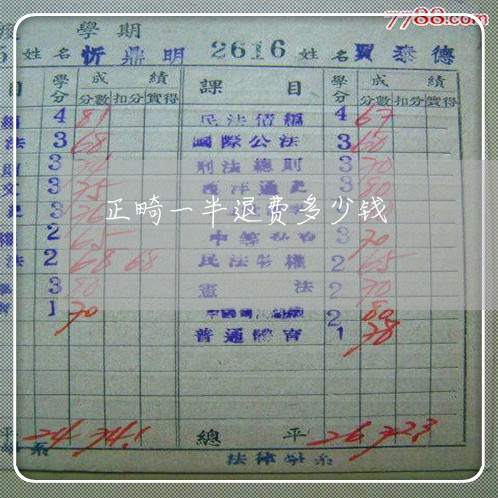 7788.com
學期
姓名 忻鼎明 2616 姓名 賈泰德
目 學分 成績 課目 學分 成績
分數 扣分 實得 分數 扣分 實得
4 81 民法債編 4 67
法 3 68 國際公法 3 60
3 刑法總則 3 70
3 75 西洋通史 3 80
正畸一半退费多少钱
2 65 3 70
法 2 68 68 民法物權 2 65
3 80 憲法 2 70
1 70 2 80
普通體育 1 78
平 24 74.1 總平 26 72.3
系 法律學系